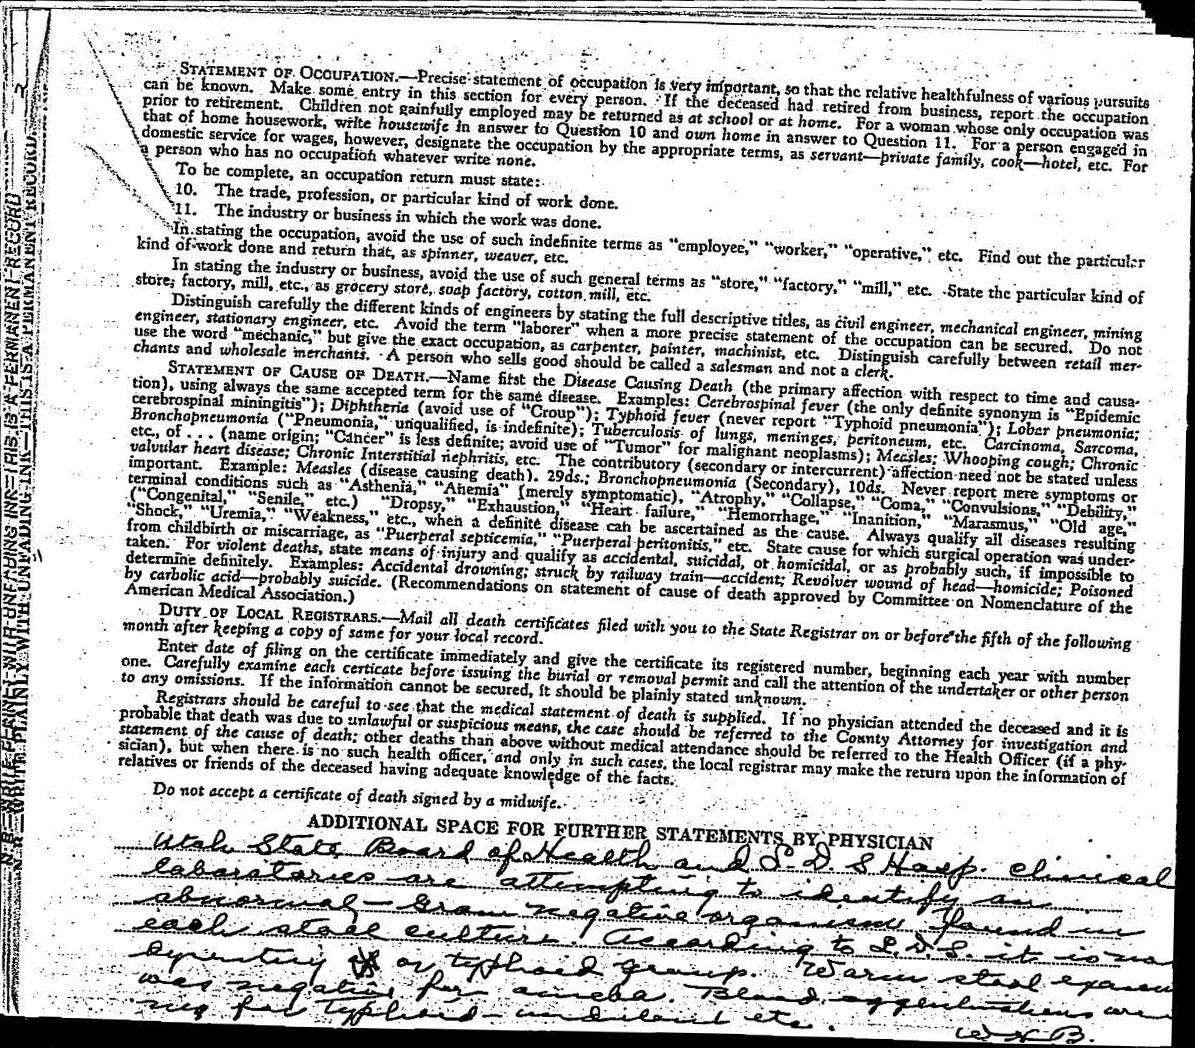 STATEMENT OF OCCUPATION.—Precise statement of occupation is very important, so that the relative healthfulness of various pursuits
can be known. Make some entry in this section for every person. If the deceased had retired from business, report the occupation
prior to retirement. Children not gainfully employed may be returned as at school or at home. For a woman whose only occupation was
that of home housework, write housewife in answer to Question 10 and own home in answer to Question 11. For a person engaged in
domestic service for wages, however, designate the occupation by the appropriate terms, as servant—private family, cook—hotel, etc. For
a person who has no occupation whatever write none.
To be complete, an occupation return must state:
10. The trade, profession, or particular kind of work done.
11. The industry or business in which the work was done.
In stating the occupation, avoid the use of such indefinite terms as "employee," "worker," "operative," etc. Find out the particular
kind of work done and return that, as spinner, weaver, etc.
In stating the industry or business, avoid the use of such general terms as "store," "factory," "mill," etc. State the particular kind of
store, factory, mill, etc., as grocery store, soap factory, cotton mill, etc.
Distinguish carefully the different kinds of engineers by stating the full descriptive titles, as civil engineer, mechanical engineer, mining
engineer, stationary engineer, etc. Avoid the term "laborer" when a more precise statement of the occupation can be secured. Do not
use the word "mechanic," but give the exact occupation, as carpenter, painter, machinist, etc. Distinguish carefully between retail mer-
chants and wholesale merchants. A person who sells good should be called a salesman and not a clerk.
STATEMENT OF CAUSE OF DEATH.—Name first the Disease Causing Death (the primary affection with respect to time and causa-
tion), using always the same accepted term for the same disease. Examples: Cerebrospinal fever (the only definite synonym is "Epidemic
cerebrospinal miningitis"); Diphtheria (avoid use of "Croup"); Typhoid fever (never report "Typhoid pneumonia"); Lobar pneumonia;
Bronchopneumonia ("Pneumonia," unqualified, is indefinite); Tuberculosis of lungs, meninges, peritoneum, etc. Carcinoma, Sarcoma,
etc., of . . . (name origin; "Cancer" is less definite; avoid use of "Tumor" for malignant neoplasms); Measles; Whooping cough; Chronic
valvular heart disease; Chronic Interstitial nephritis, etc. The contributory (secondary or intercurrent) affection need not be stated unless
important. Example: Measles (disease causing death). 29ds.; Bronchopneumonia (Secondary), 10ds. Never report mere symptoms or
terminal conditions such as "Asthenia," "Anemia" [merely symptomatic), "Atrophy," "Collapse," "Coma," "Convulsions," "Debility,"
("Congenital," "Senile," etc.) "Dropsy," "Exhaustion," "Heart failure," "Hemorrhage," "Inanition," "Marasmus," "Old age,"
"Shock," "Uremia," "Weakness," etc., when a definite disease can be ascertained as the cause. Always qualify all diseases resulting
from childbirth or miscarriage, as "Puerperal septicemia," "Puerperal peritonitis," etc. State cause for which surgical operation was under-
taken. For violent deaths, state means of injury and qualify as accidental, suicidal, or homicidal, or as probably such, if impossible to
determine definitely. Examples: Accidental drowning; struck by railway train—accident; Revolver wound of head—homicide; Poisoned
by carbolic acid—probably suicide. (Recommendations on statement of cause of death approved by Committee on Nomenclature of the
American Medical Association.)
DUTY OF LOCAL REGISTRARS.—Mail all death certificates filed with you to the State Registrar on or before the fifth of the following
month after keeping a copy of same for your local record.
Enter date of filing on the certificate immediately and give the certificate its registered number, beginning each year with number
one. Carefully examine each certicate before issuing the burial or removal permit and call the attention of the undertaker or other person
to any omissions. If the information cannot be secured, it should be plainly stated unknown.
Registrars should be careful to see that the medical statement of death is supplied. If no physician attended the deceased and it is
probable that death was due to unlawful or suspicious means, the case should be referred to the County Attorney for investigation and
statement of the cause of death; other deaths than above without medical attendance should be referred to the Health Officer (if a phy-
sician), but when there is no such health officer, and only in such cases, the local registrar may make the return upon the information of
relatives or friends of the deceased having adequate knowledge of the facts.
Do not accept a certificate of death signed by a midwife.
ADDITIONAL SPACE FOR FURTHER STATEMENTS BY PHYSICIAN
Utah State Board of Health and L. D. S Hosp. clinical
laboratories are attempting to identify an
abnormal - Gram negative organism found in
each stool culture. According to L.D.S. it is no
dysentery or typhoid group. Warm stool exam
was negative for ameba. Blood agglutinations were
neg for typhoid - undulant etc.
W H B.
N. B.—WRITE PLAINLY WITH UNFADING INK—THIS IS A PERMANENT RECORD